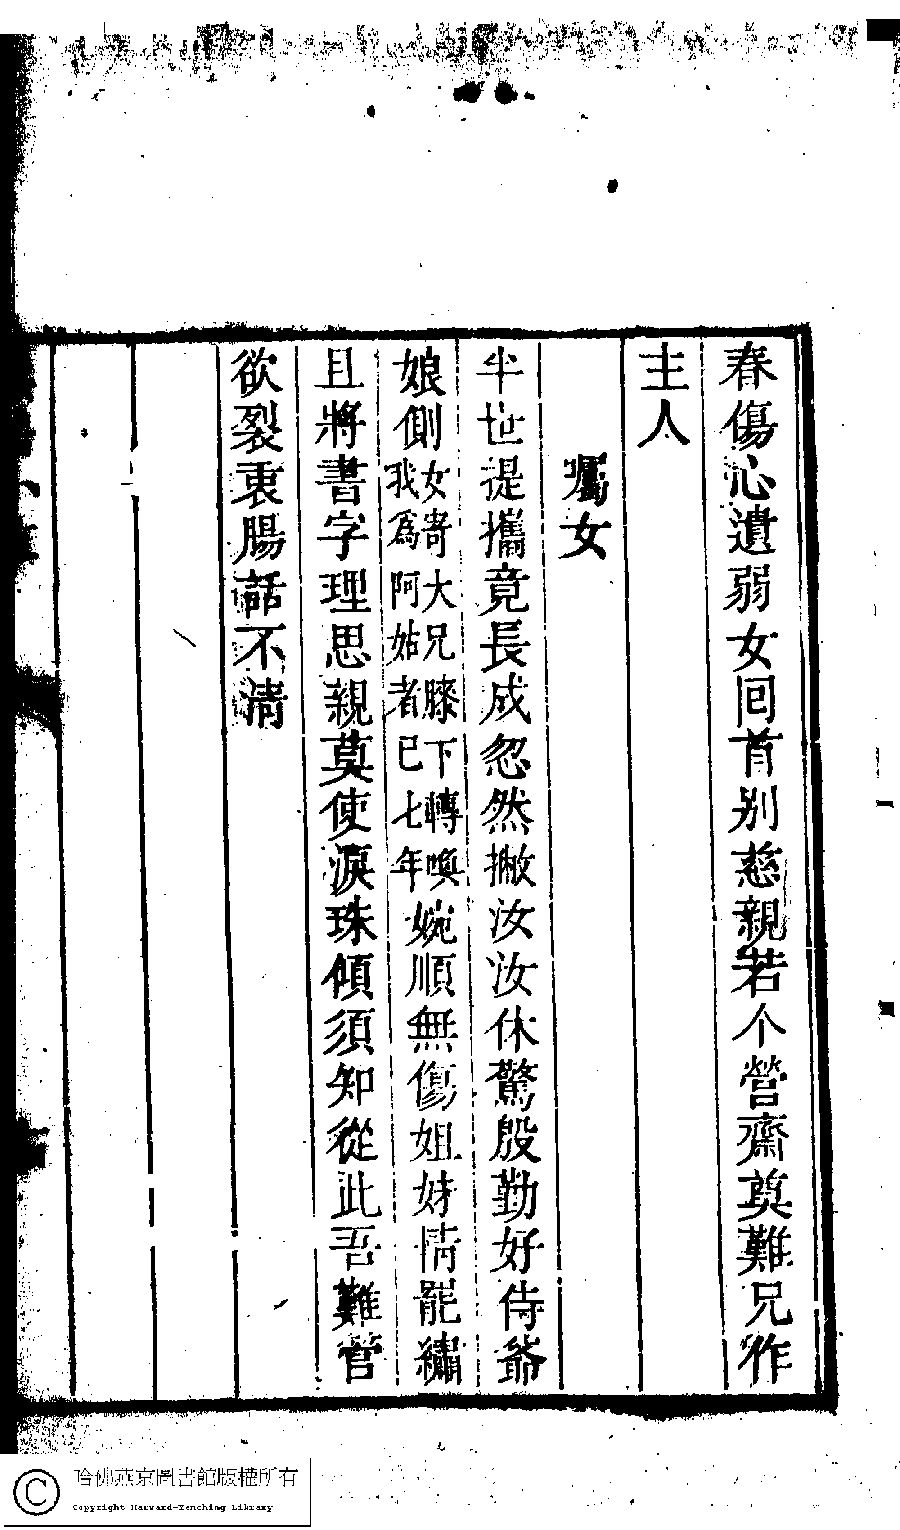 春傷心遺弱女回首別慈親若个營齋奠難兄作
主人
囑女
半世提攜竟長成忽然撇汝汝休驚殷勤好侍爺
娘側女寄大兄膝下轉喚我為阿姑者已七年婉順無傷姐妹情罷繡
且將書字理思親莫使淚珠傾須知從此吾難管
欲裂衷腸話不清
哈佛燕京圖書館版權所有
Copyright Harvard-Yenching Library